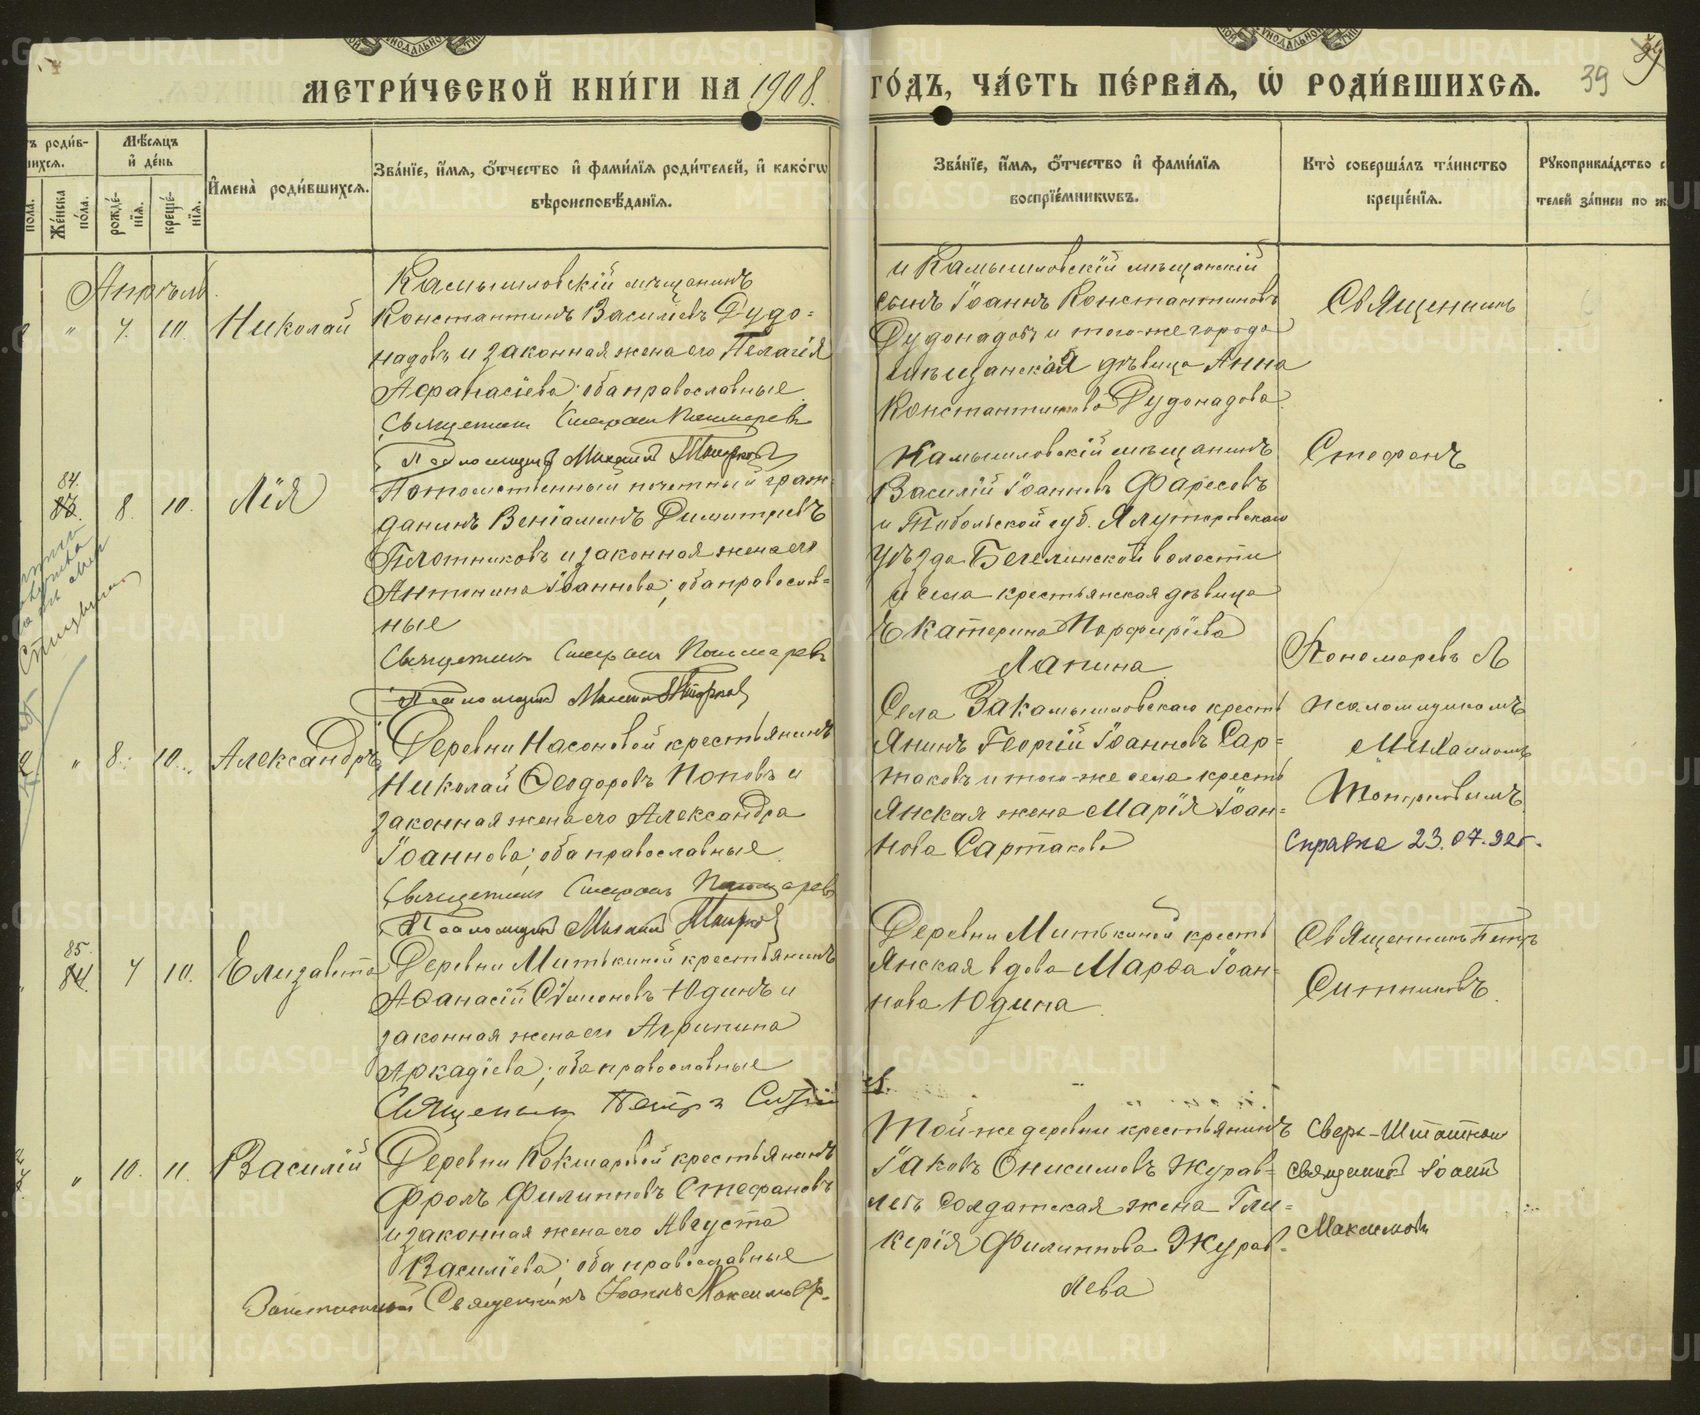 МЕТРИ́ЧЕСКОЙ КНИ́ГИ НА 1908.
ГО́ДЪ, ЧА́СТЬ ПЕ́РВАѦ, Ѡ҆ РОДИ́ВШИХСѦ.
39
Мѣ́сѧцъ и҆ де́нь
Же́нска по́ла.
рожде́нїѧ.
креще́нїѧ.
И҆мена̀ роди́вшихсѧ.
Зва́нїе, и҆́мѧ, ѻ҆́тчество и҆ фами́лїѧ роди́телей, и҆ како́гѡ
вѣроисповѣ́данїѧ.
Зва́нїе, и҆́мѧ, ѻ҆́тчество и҆ фами́лїѧ
воспрїе́мникѡвъ.
Кто̀ соверша́лъ та́инство
креще́нїѧ.
Рꙋкоприкла́дство с
телей за́писи по ж
Апрѣль
" 7. 10. Николай
Камышловскій мѣщанинъ
Константинъ Василіевъ Дудо=
надовъ и законная жена его Пелагія
Афанасіева; оба православные
Священникъ Стефанъ Пономаревъ
Псаломщикъ Михаилъ Топорковъ
и Камышловскій мѣщанскій
сынъ Іоаннъ Константиновъ
Дудонадовъ и того-же города
мѣщанская дѣвица Анна
Константинова Дудонадова.
Священникъ
84.
83. 8. 10. Лія
Потомственный почетный граж-
данинъ Веніаминъ Димитріевъ
Плотниковъ и законная жена его
Антонина Іоаннова; оба православ=
ные
Священникъ Стефанъ Пономаревъ
Псаломщикъ Михаилъ Топорковъ
Камышловскій мѣщанинъ
Василій Іоанновъ Фаресовъ
и Тобольской губ. Ялуторовскаго
уѣзда Бегелинской волости
и села крестьянская дѣвица
Екатерина Порфиріева
Лапина
Стефанъ
Пономаревъ
" 8. 10. Александръ
Деревни Насоновой крестьянинъ
Николай Ѳеодоровъ Поповъ и
законная жена его Александра
Іоаннова; оба православные
Священникъ Стефанъ Пономаревъ
Псаломщикъ Михаилъ Топорковъ
Села Закамышловскаго кресть
янинъ Георгій Іоанновъ Сар=
таковъ и того-же села кресть
янская жена Марія Іоан=
нова Сартакова
псаломщикомъ
Михаиломъ
Топорковымъ
Справка 23.07.92г.
85.
84. 7 10. Елизавета
Деревни Митькиной крестьянинъ
Аѳанасій Симоновъ Юдинъ и
законная жена его Агрипина
Аркадіева; оба православные
Священникъ Петръ
Деревни Митькиной кресть
янская вдова Марѳа Іоан=
нова Юдина
Священникъ Петръ
Ситниковъ.
" 10. 11. Василій
Деревни Кокшаровой крестьянинъ
Фролъ Филипповъ Стефановъ
и законная жена его Августа
Василіева; оба православные
Заштатный Священникъ Іоаннъ Максимовъ.
Той-же деревни крестьянинъ
Іаковъ Онисимовъ Журав=
левъ солдатская жена Гли=
керія Филиппова Журав=
лева
Сверх-Штатный
священникъ Іоаннъ
Максимовъ
METRIKI.GASO-URAL.RU